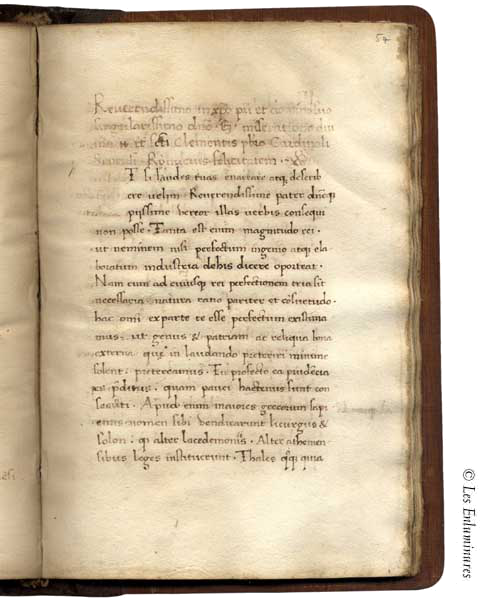 54
Reverendissimo in xpo pri et
singularissimo dno miseratione diu
tt sctī Clementis pbro Cardinali
felicitatem
T si laudes tuas enarrare atq describ
ere uelim Reuerendissime pater dne q
piissime uereor illas uerbis consequi
non posse. Tanta est enim magnitudo rei.
ut neminem nisi perfectum ingenio atq ela
boratum industria debis dicere oporteat.
Nam cum ad cuiusq rei perfectionem tria sit
necessaria natura ratio pariter et cosuetudo.
hac omi ex parte te esse perfectum existima
mus. ut genus & patriam ac reliqua bona
externa que in laudando preteriri minime
solent: pretereamus. Tu profecto ea prudecia
preditus. quam pauci hactenus sunt con
secuti. Apud enim maiores grecorum sapi
entis nomen sibi uendicarunt licurgus &
solon: q alter lacedemoniis. Alter athenien
sibus leges instituerunt. Thales quia
© Les Enluminures